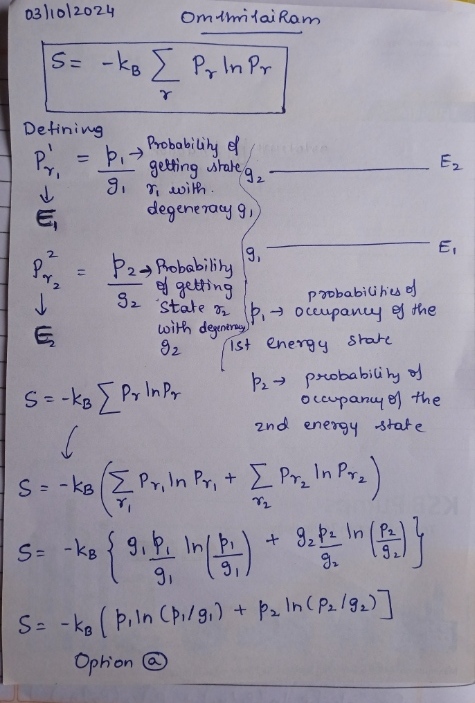 03/10/2024 OmShriSaiRam
S = -k_B Σ_r P_r ln P_r
Defining
P_{r_1}^1 = p_1/g_1 → Probability of getting state r_1 with degeneracy g_1
↓
E_1
g_2 ——— E_2
g_1 ——— E_1
P_{r_2}^2 = p_2/g_2 → Probability of getting state r_2 with degeneracy g_2
↓
E_2
p_1 → probabilities of occupancy of the 1st energy state
p_2 → probability of occupancy of the 2nd energy state
S = -k_B Σ P_r ln P_r
S = -k_B ( Σ_{r_1} P_{r_1} ln P_{r_1} + Σ_{r_2} P_{r_2} ln P_{r_2} )
S = -k_B { g_1 p_1/g_1 ln(p_1/g_1) + g_2 p_2/g_2 ln(p_2/g_2) }
S = -k_B [ p_1 ln (p_1/g_1) + p_2 ln (p_2/g_2) ]
Option ⓐ